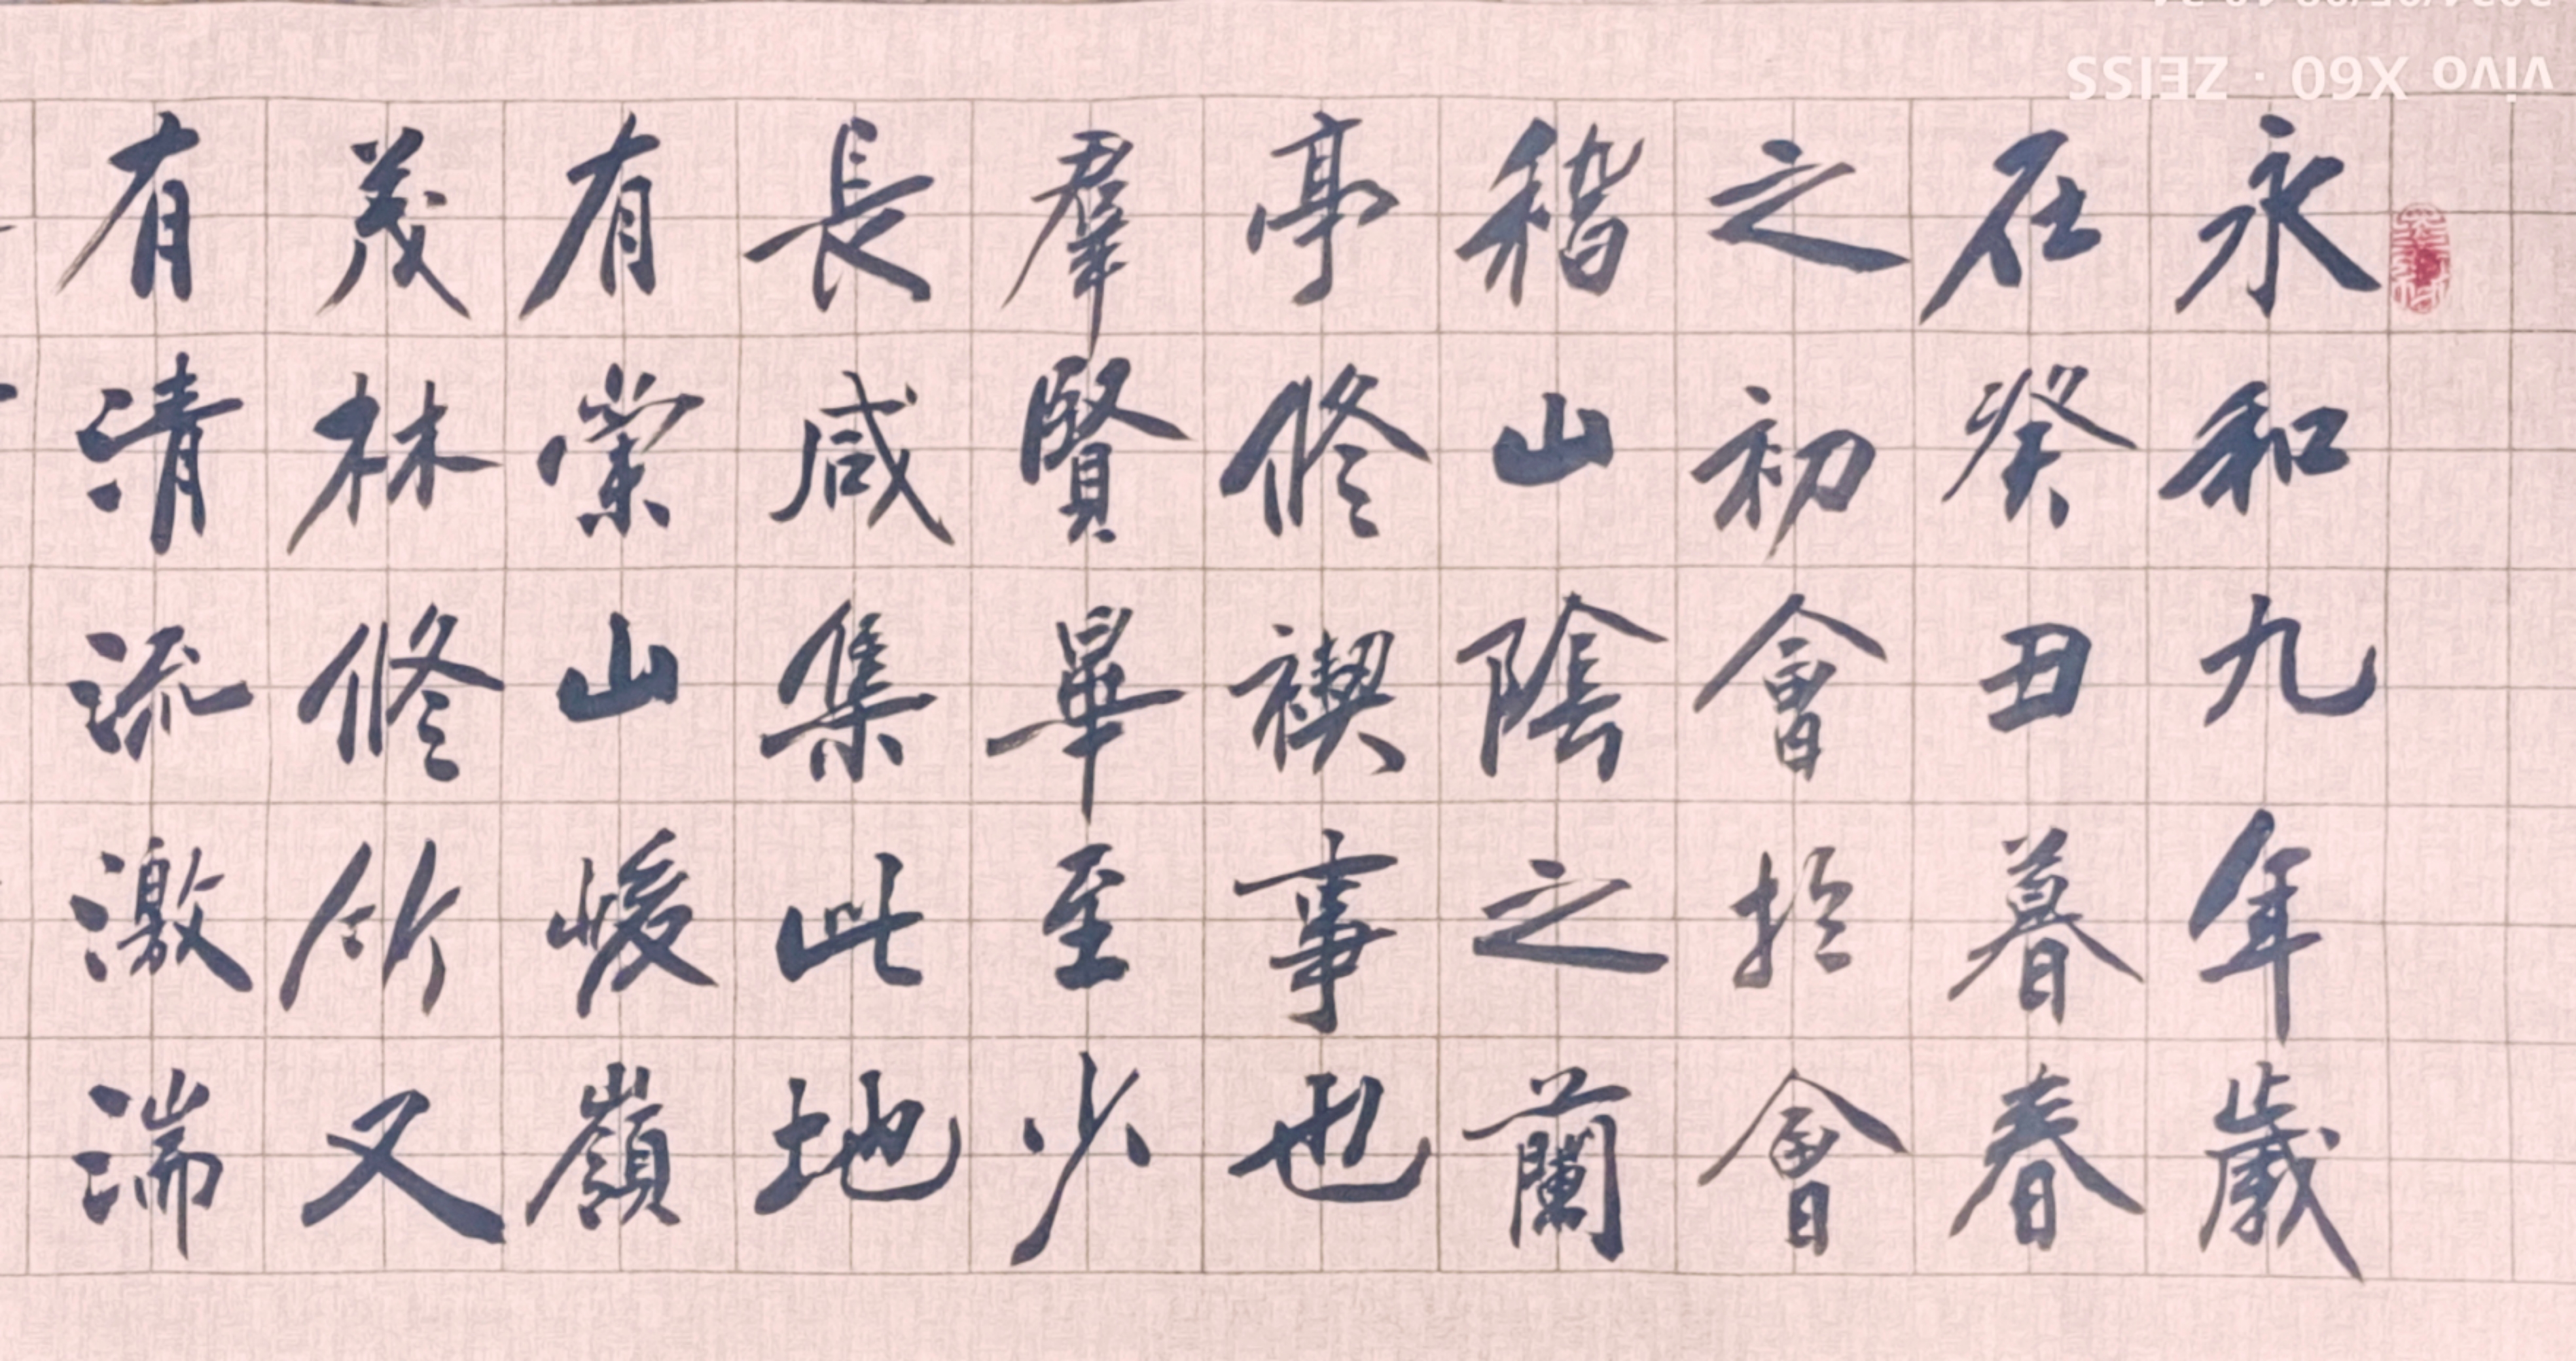 永和九年歲
在癸丑暮春
之初會於會
稽山陰之蘭
亭脩禊事也
羣賢畢至少
長咸集此地
有崇山峻嶺
茂林脩竹又
有清流激湍
vivo X60 · ZEISS